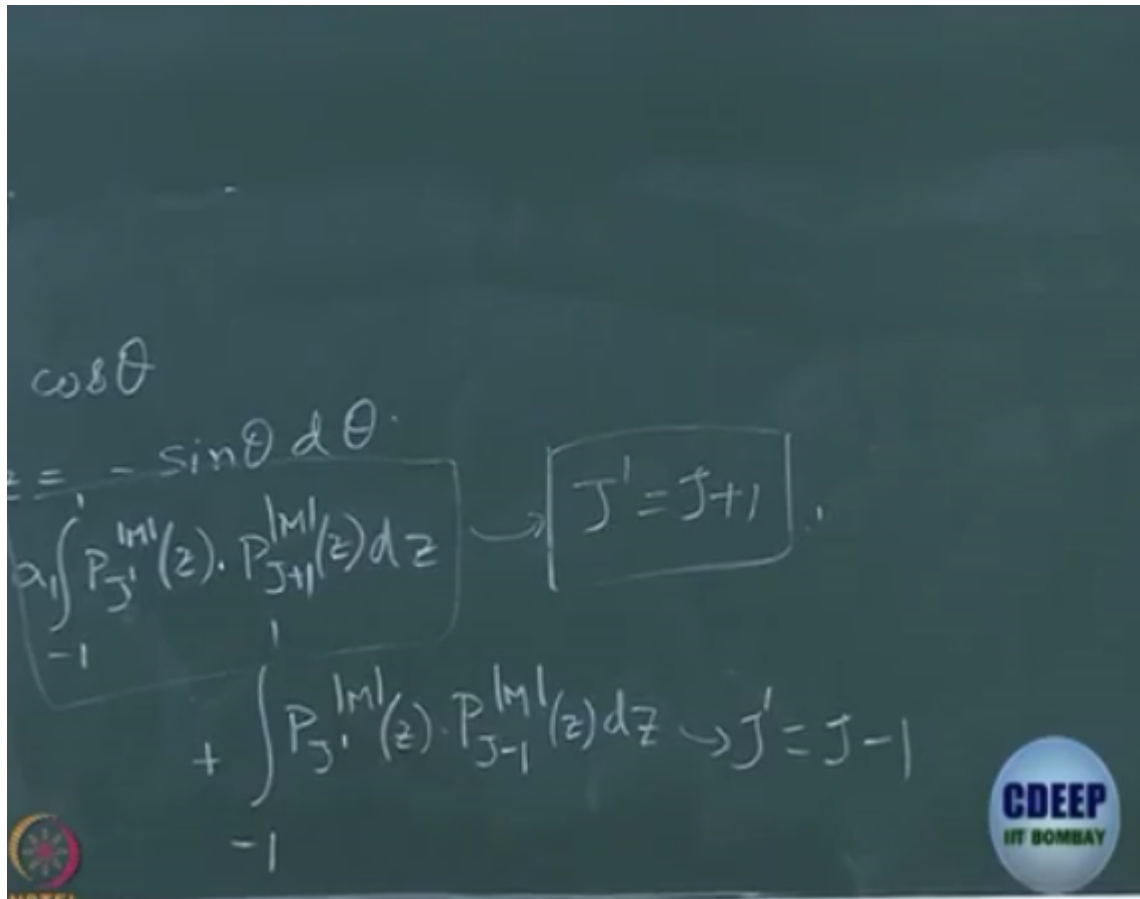 cosθ
z = - sinθ dθ.
a₁∫₋₁¹ P_J'^|M|(z). P_J+1^|M|(z)dz → J' = J+1 .
+ ∫₋₁¹ P_J'^|M|(z). P_J-1^|M|(z)dz → J' = J-1
CDEEP
IIT BOMBAY
NPTEL